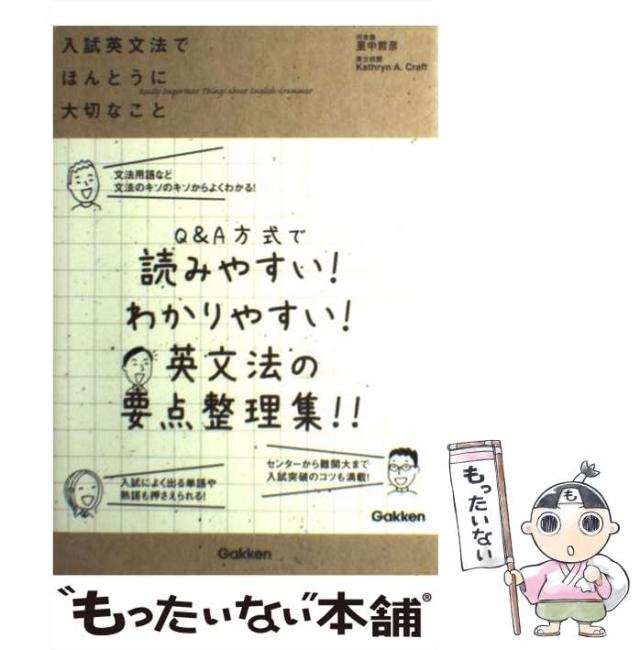 入試英文法で
ほんとうに
大切なこと
Really Important Things about English Grammar
河合塾
里中哲彦
英文校閲
Kathryn A. Craft
文法用語など
文法のキソのキソからよくわかる!
Q&A方式で
読みやすい!
わかりやすい!
英文法の
要点整理集!!
センターから難関大まで
入試突破のコツも満載!
入試によく出る単語や
熟語も押さえられる!
Gakken
Gakken
"もったいない"本舗®
もったいない
も